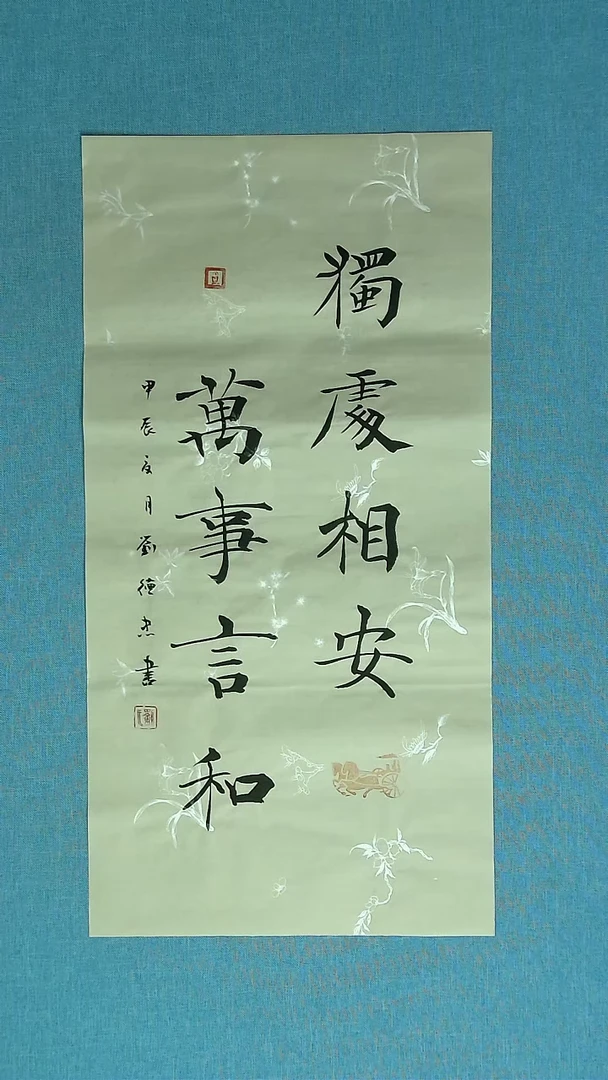 獨處相安
萬事言和
甲辰夏月劉德杰書